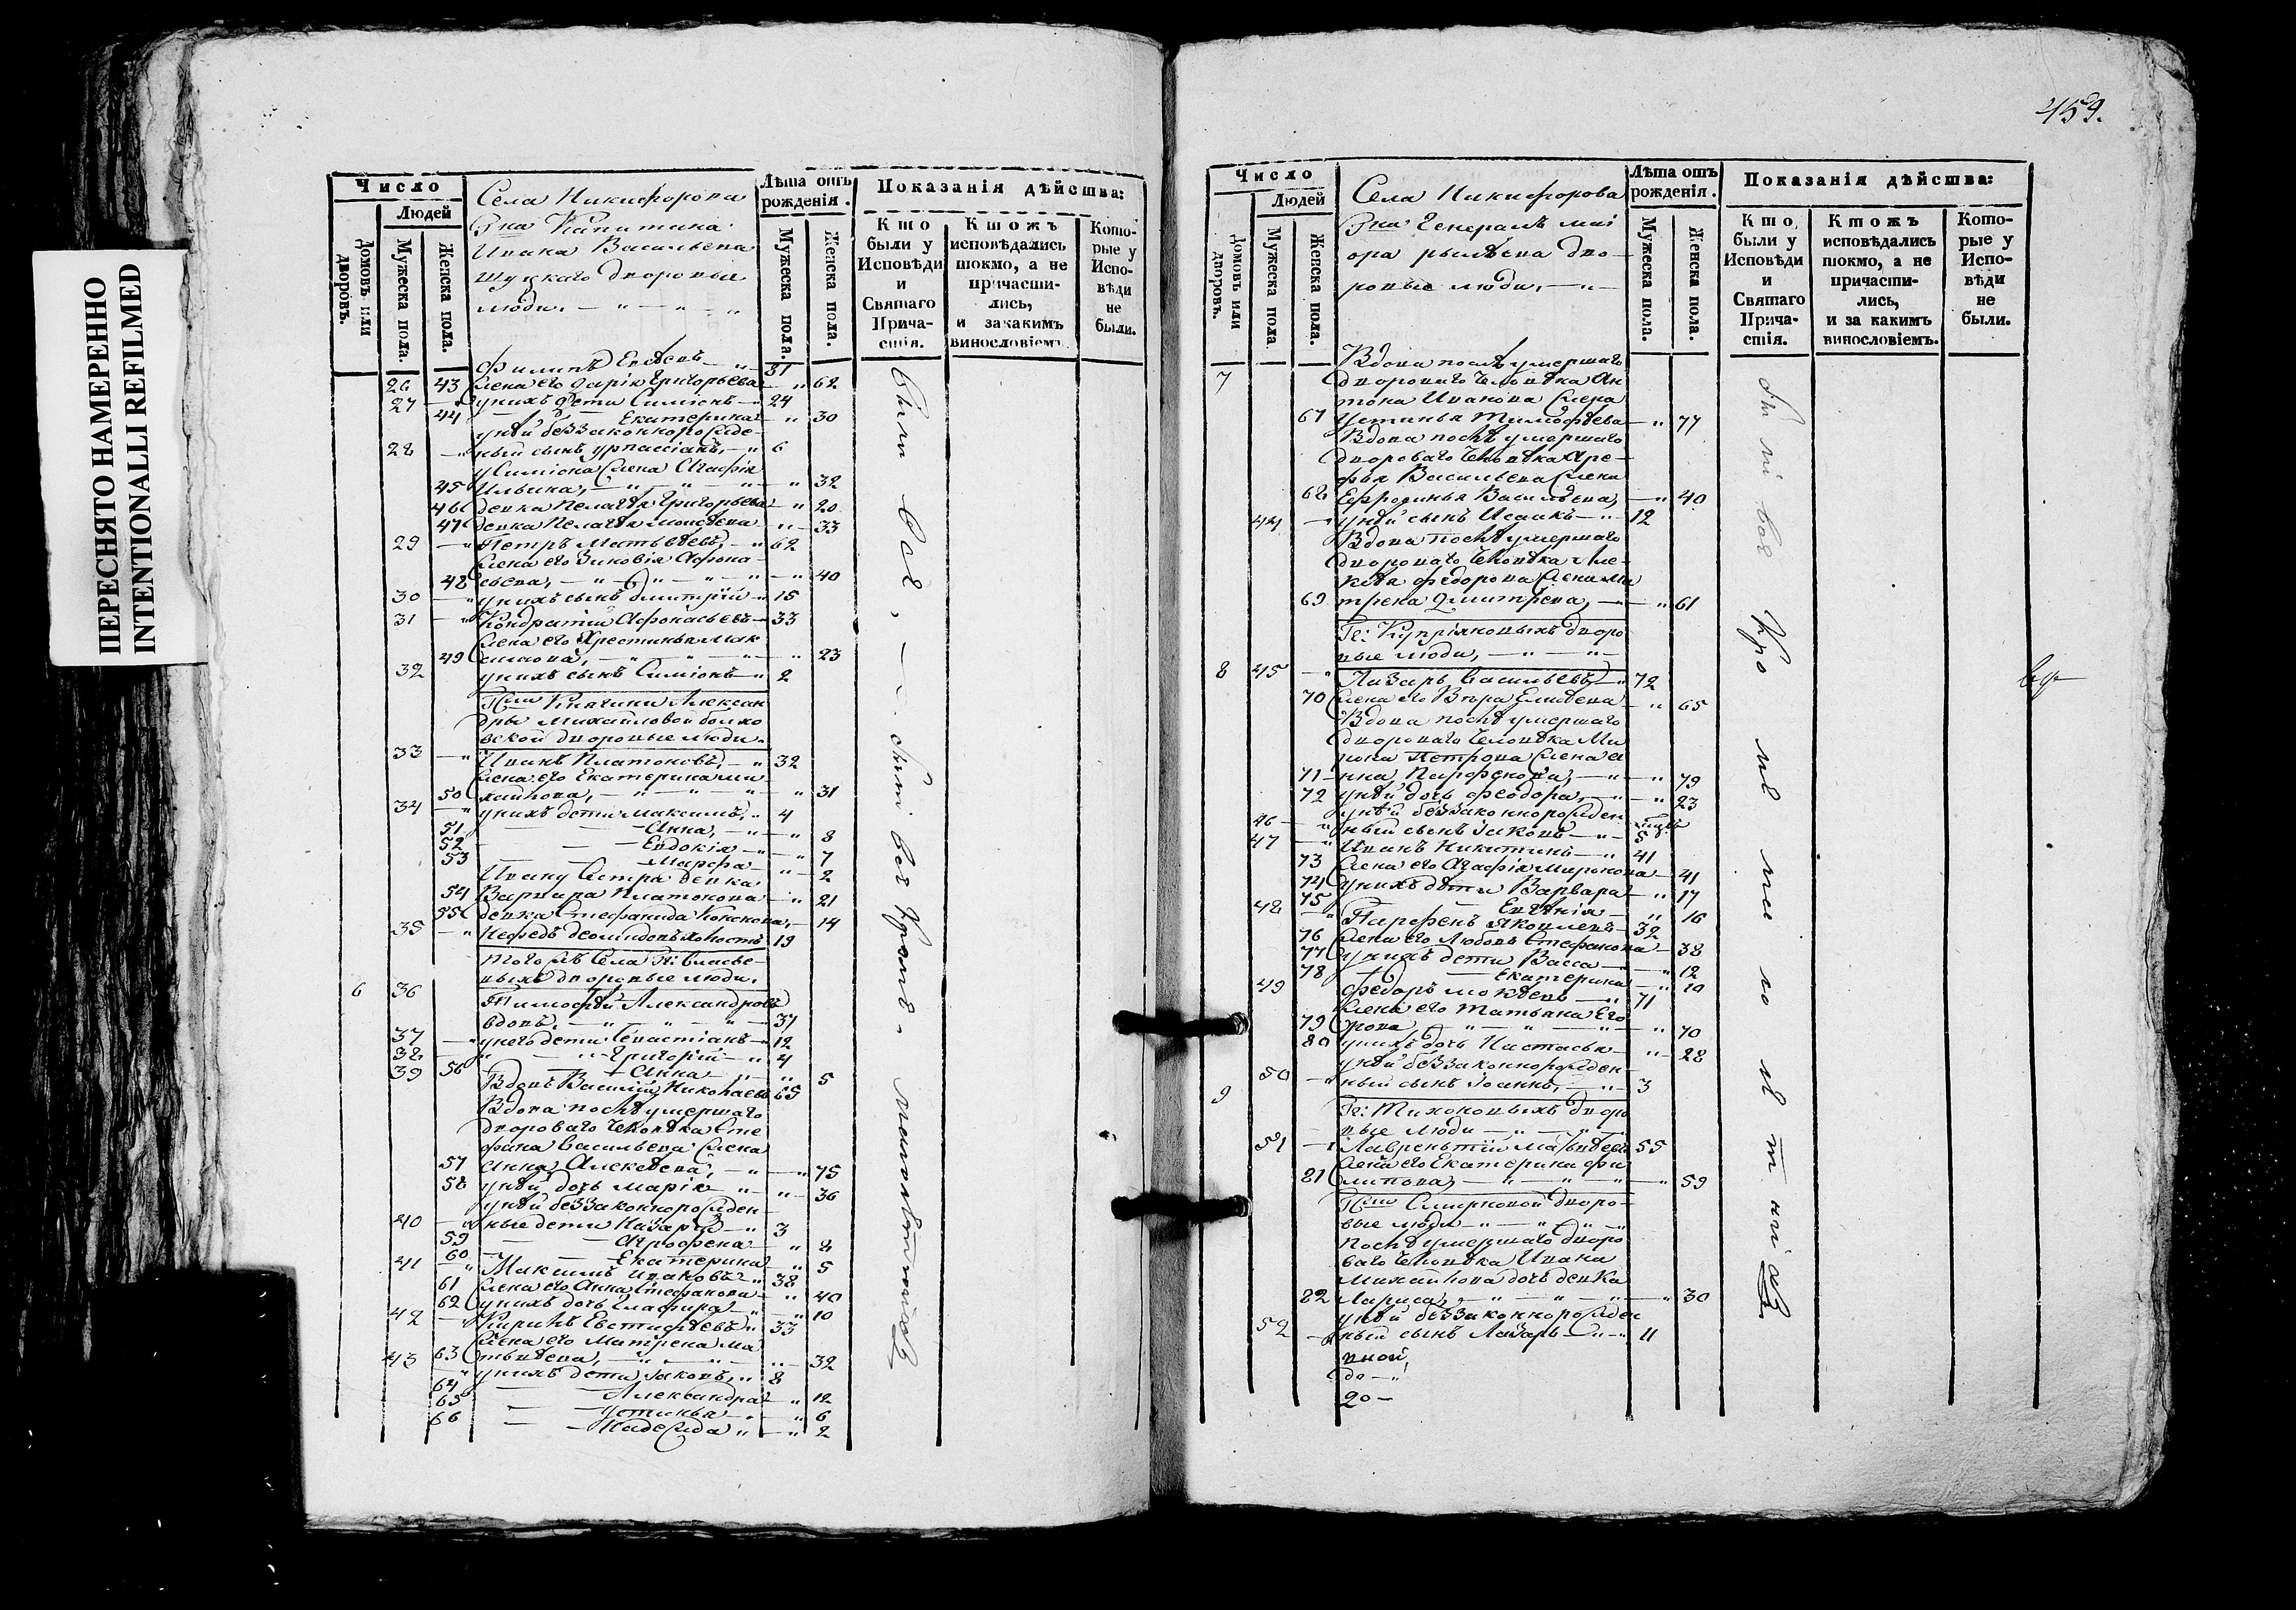 ПЕРЕСНЯТО НАМЕРЕННО
INTENTIONALLI REFILMED
Число
Людей
Домовъ или дворовъ.
Мужеска пола.
Женска пола.
Села Никифорова
Гна Капитана
Ивана Васильева
Шуцкаго дворовыя
люди
Лѣта отъ рожденія.
Мужеска пола.
Женска пола.
Показанія дѣйства:
Кто были у Исповѣди и Святаго Причастія.
Ктожъ исповѣдались токмо, а не причастились, и закакимъ винословіемъ
Которые у Исповѣди не были.
26 43 жена его Дарія Григорьева 62
27 унихъ дети Симіонъ 24
44 Екатерина 30
уней беззаконнорожде-
28 ный сынъ 6
у Симіона жена Агафія
45 Ильина, 32
46 девка Пелагѣя Григорьева 20
47 девка Пелагѣя Моисѣева 33
29 Петръ Матвѣевъ 62
жена его Зиновія Афона-
48 сьева, 40
30 унихъ сынъ Дмитрій 15
31 Кондратій Афонасьевъ 33
жена его Хрестинья Мак
49 симова, 23
32 унихъ сынъ Симіонъ 2
Гжи Княгини Алексан
дры Михайловой болхо
вской дворовые люди.
33 Иванъ Платоновъ, 32
жена его Екатерина ми
50 хайлова, 31
34 унихъ дети Максимъ, 4
51 Анна, 8
52 Евдокія 7
53 Марфа 2
Ивану сестра девка
54 Варвара Платонова 21
55 девка Стефанида 14
35 19
тогожъ Села Гг: Власье-
выхъ дворовые люди.
6 36 Тимофѣй Александровъ
вдовъ, 37
37 унего дети Севастіанъ 12
38 Григорій 4
56 Анна 5
39 Вдовъ Василій Николаевъ 65
Вдова послѣ умершаго
Двороваго человѣка Сте
фана Васильева жена
57 Анна Алексѣева, 75
58 уней дочь Марія 36
уней беззаконнорожден-
40 ные дети Назарій 3
59 Агрофена 8
60 Екатерина 5
41 Максимъ Ивановъ 38
61 жена его Анна Стефанова 40
62 унихъ дочь Глафира 10
42 33
жена его Матрена Ма
63 твѣева, 32
43 унихъ дети Іаковъ, 8
64 Александра 12
65 Устинья 6
66 Надежда 2
459.
Число
Людей
Домовъ или дворовъ.
Мужеска пола
Женска пола.
Села Никифорова
Гна Генералъ маі
ора рылѣева дво-
ровые люди,
Лѣта отъ рожденія.
Мужеска пола.
Женска пола.
Показанія дѣйства:
Кто были у Исповѣди и Святаго Причастія.
Ктожъ исповѣдались токмо, а не причастились, и за какимъ винословіемъ.
Которые у Исповѣди не были.
7 Вдова послѣ умершаго
двороваго человѣка Ан
тона Иванова жена
67 Устинья Тимофѣева 77
Вдова послѣ умершаго
двороваго человѣка Аре-
фья Васильева жена
68 Ефросинья Васильева, 40
44 уней сынъ Исаакъ 12
Вдова послѣ умершаго
двороваго человѣка Але-
ксѣя Федорова жена ма
69 трена Дмитрева, 61
Гг: Купріяновыхъ дворо
вые люди,
8 45 Лазарь Васильевъ 72
70 жена его Вѣра Елисѣева 65
Вдова послѣ умершаго
двороваго человѣка Ми
рона Петрова жена а
71 нна Парфенова, 79
72 уней дочь Феодора, 23
уней беззаконнорожден
46 ный сынъ Іаковъ
47 Иванъ Никитинъ 41
73 жена его Агафія Миронова 41
74 унихъ дѣти Варвара 17
75 Евгенія 16
48 Парфенъ Яковлевъ 32
76 жена его Любовь Стефанова 38
77 унихъ дети Васса 12
78 Екатерина 10
49 Федоръ 71
жена его Татьяна Его
79 рова, 70
80 унихъ дочь Настасья 28
уней беззаконнорожден
50 ный сынъ Іоаннъ, 3
9 Гг: Тихоновыхъ дворо
вые люди
51 Лаврентій Матвѣевъ 55
жена его Екатерина фи
81 липова, 59
Гжи Смирновой дворо-
вые люди
Послѣ умершаго дворо
ваго человѣка Ивана
Михайлова дочь девка
82 Лариса, 30
уней беззаконнорожден
52 ный сынъ Лазарь 11